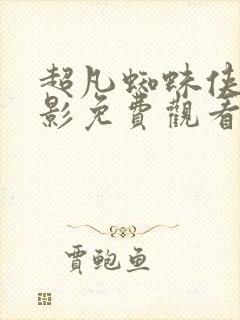 超凡蜘蛛侠
影免費觀看
賈鲍鱼